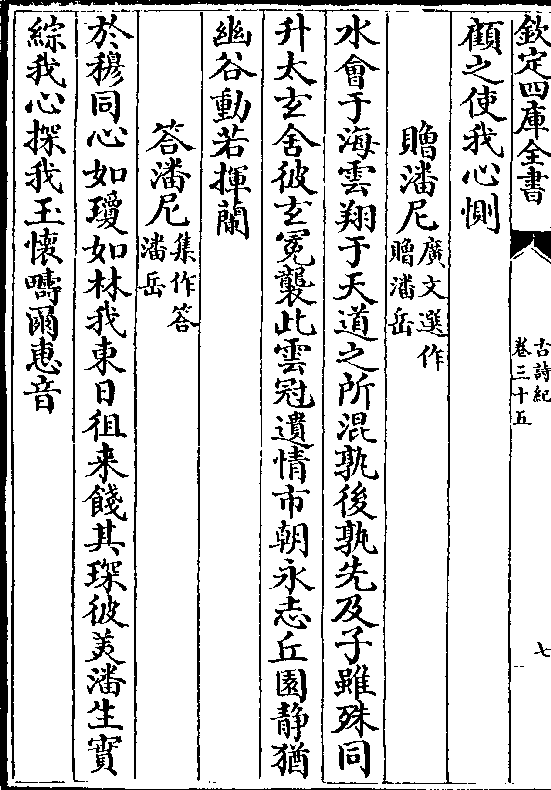 欽定四庫全書
古詩紀
卷三十五
七
顧之使我心惻
贈潘尼廣文選作贈潘岳
水會于海雲翔于天道之所混孰後孰先及子雖殊同
升太玄舍彼玄冕襲此雲冠遺情市朝永志丘園静猶
幽谷動若揮蘭
答潘尼集作答潘岳
於穆同心如瓊如林我東日徂来餞其琛彼美潘生實
綜我心探我玉懷疇爾惠音